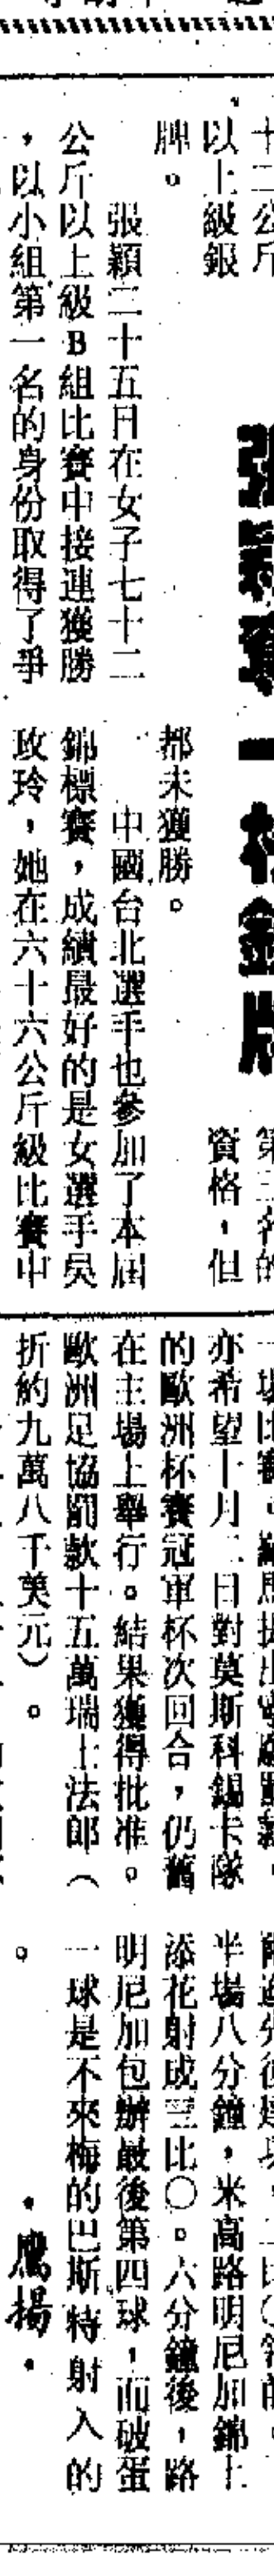 張穎獲一枚銀牌
十二公斤
以上級銀
牌。
張穎二十五日在女子七十二
公斤以上級B組比賽中接連獲勝
，以小組第一名的身份取得了爭
第三名的
資格，但
都未獲勝。
中國台北選手也參加了本屆
錦標賽，成績最好的是女選手吳
玫玲，她在六十六公斤級比賽中
亦希望十月二日對莫斯科錫卡隊
的歐洲杯賽冠軍杯次回合，仍舊
在主場上舉行。結果獲得批准。
歐洲足協罰款十五萬瑞士法郎（
折約九萬八千美元）。
半場八分鐘，米高路明尼加錦上
添花射成三比〇。六分鐘後，路
明尼加包辦最後第四球，而破蛋
一球是不來梅的巴斯特射入的
。
·鷹揚·